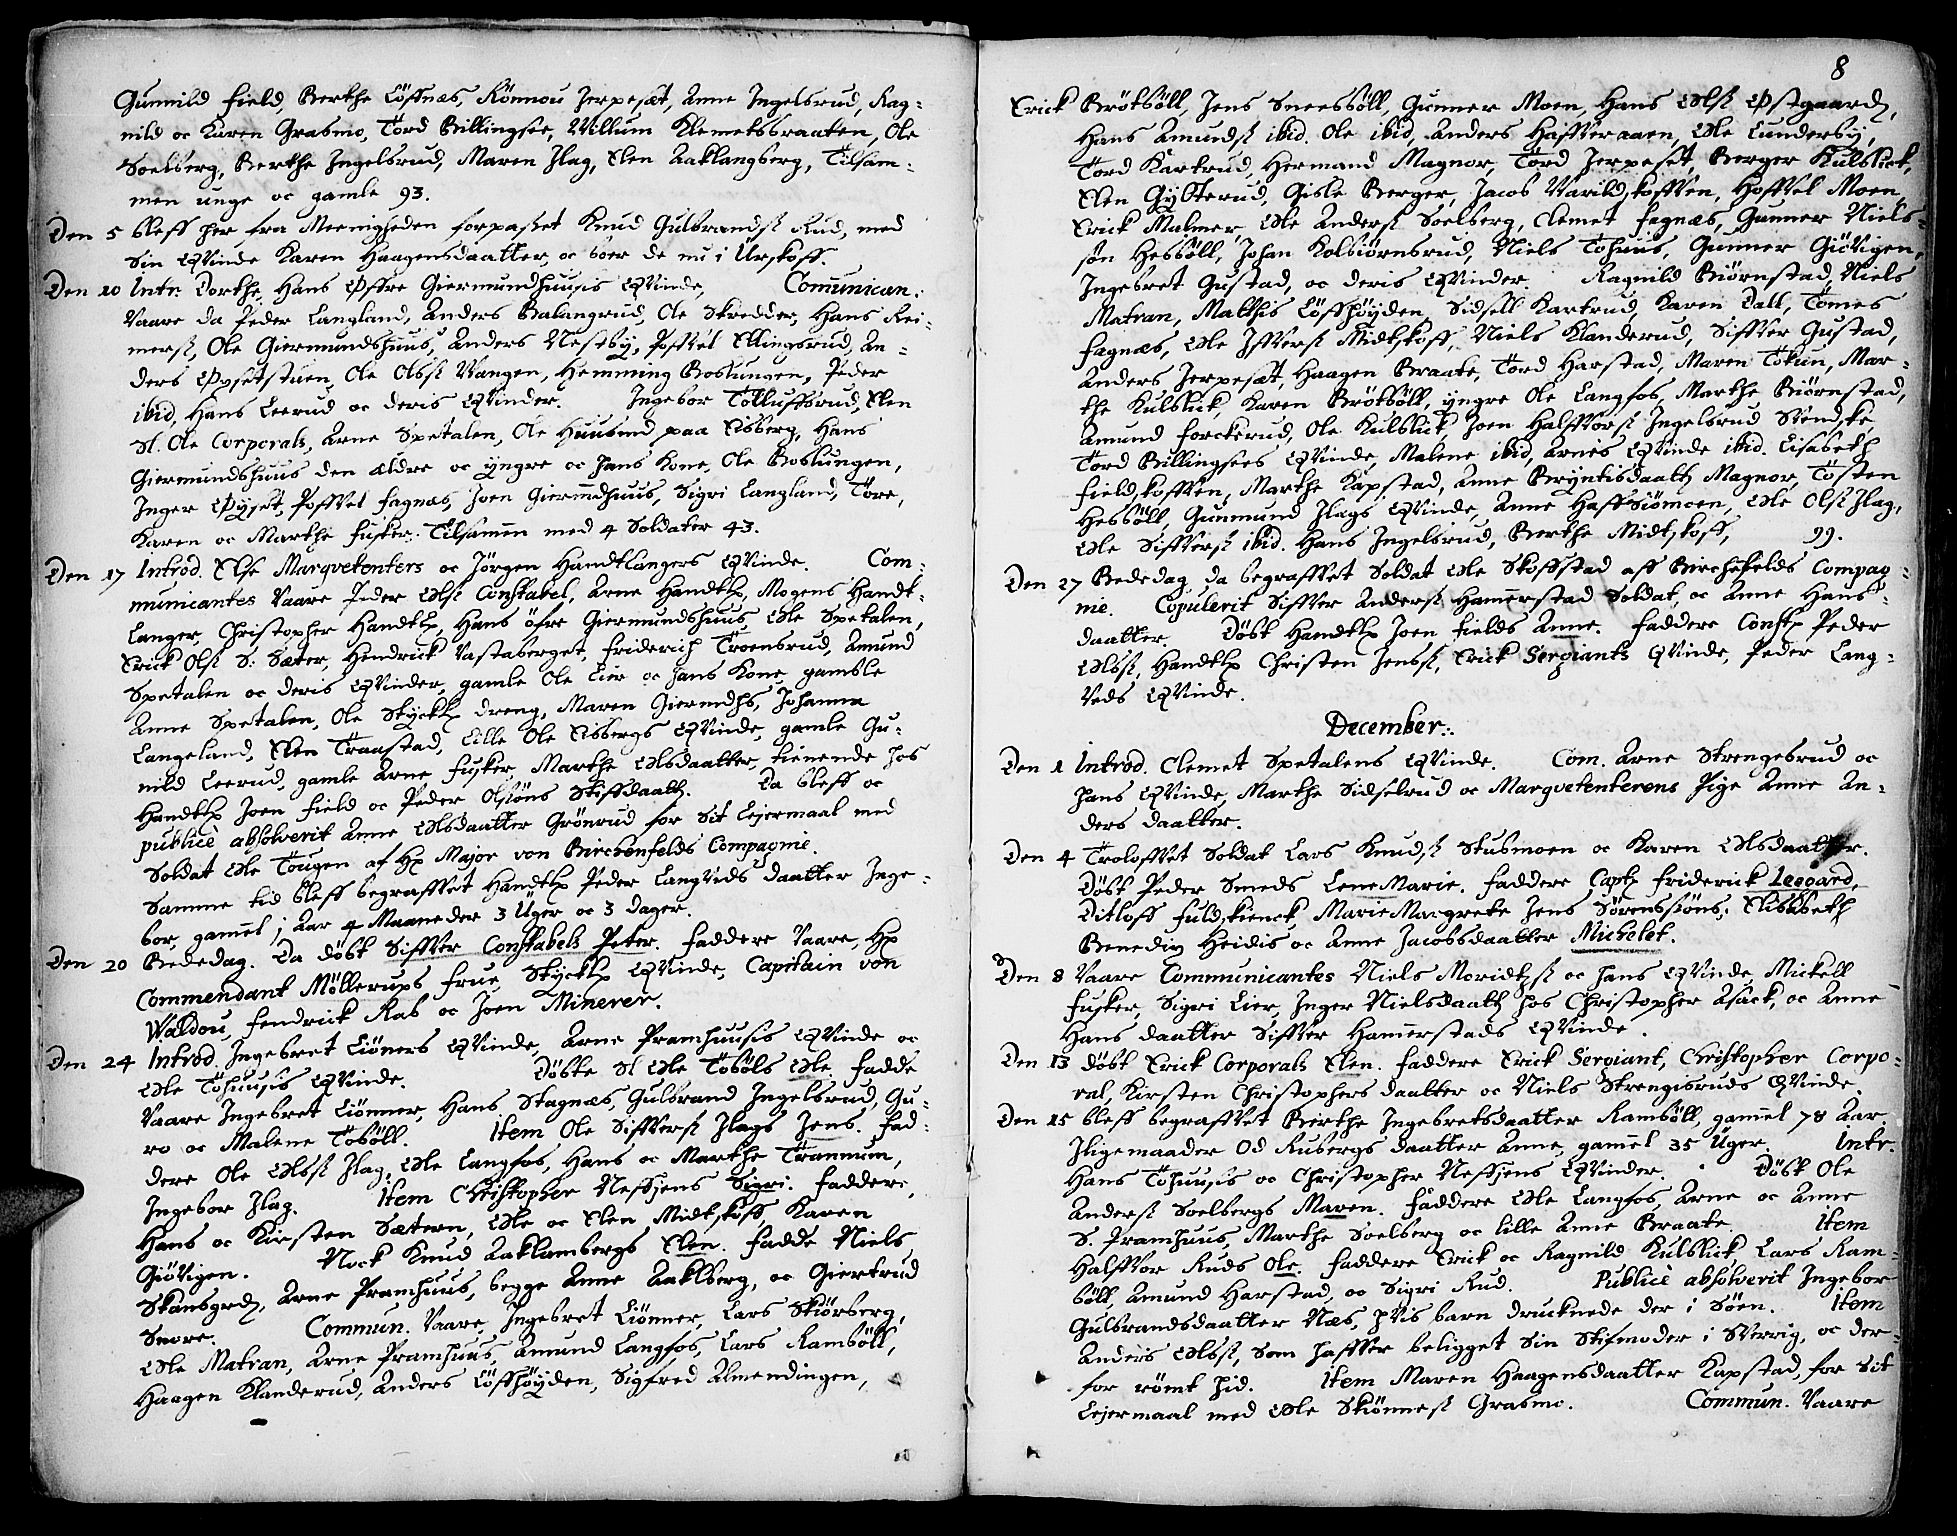 Gunnild Field, Berthe Löffnæs, Rönnou Jerpeset, Anne Ingelsrud, Rag-
nild oc Karen Grasmo, Tord Billingsee, Willum Klemetsbraaten, Ole
Soelberg, Berthe Ingelsrud, Maren Jlag, Elen Aaklangberg, Tilsam-
men unge oc gamle 93.
Den 5 bleff her fra Meenigheden forpasset Knud Gulbrands: Rud, med
Sin Qvinde Karen Haagensdaatter, oc boer de nu i Urskoff.
Den 10 Intr: Dorthe, Hans Öffre Giermundhuusis Qvinde, Comunican:
Vaare da Peder Langland, Anders Balangrud, Ole Skredder, Hans Rei-
mers:, Ole Giermundshuus, Anders Nesteby, Poffvel Ellingsrud, An-
ders Öysetstuen, Ole Ols: Vangen, Hemming Boslungen, Peder
ibid, Hans Leerud oc deris Qvinder. Ingebor Tolluffsrud, Elen
Sl. Ole Corporals, Arne Spetalen, Ole Huusmd paa Eisberg, Hans
Giermundshuus den ældre oc yngre oc hans Kone, Ole Boslungen,
Inger Öyset, Poffvel Fagnæs, Joen Giermdhuus, Sigri Langland, Tore,
Karen oc Marthe Fusker: Tilsamen med 4 Soldater 43.
Den 17 Introd. Else Marqvetenters oc Jörgen Handtlangers Qvinde. Com-
municantes Vaare Peder Ols: Constabel, Arne Handtl:, Mogens Handt-
langer, Christopher Handtl: Hans öfre Giermundshuus, Ole Spetalen,
Erick Ols: S: Sæter, Hendrick Vastaberget, Friderich Troensrud, Amund
Spetalen oc deris Qvinder, gamle Ole Lier oc hans Kone, gamble
Anne Spetalen, Ole Stÿckl: dreng, Maren Giermdhs, Johanna
Langeland, Elen Traastad, Lille Ole Eisbergs Qvinde, gamle Gu-
nild Leerud, gamle Arne Fusker, Marthe Olsdaatter, tienende hos
Handtl: Joen Field oc Peder Olsöns Stiffdaatt:. Da bleff oc
publicè absolverit Anne Olsdaatter Grönrud for Sit Lejermaal med
Soldat Ole Tougen af H: Major von Birckenfelds Compagnie.
Samme tid bleff begraffvet Handtl: Peder Langvids daatter Inge-
bor, gamel 1 Aar 4 Maaneder 3 Uger oc 3 dager.
Den 20 Bededag. Da döbt Siffver Constabels Peter. Faddere Vaare, H:
Commendant Möllerups Frue, Stÿckl: Qvinde, Capitain von
Waldou, Fendrick Rab oc Joen Minerer.
Den 24 Introd. Ingebret Liöners Qvinde, Arne Pramhuusis Qvinde oc
Ole Tohuusis Qvinde. Döbte Sl Ole Toböls Ole. Fadde
Vaare Ingebret Liönner, Hans Stagnæs, Gulbrand Ingelsrud, Gu-
ro oc Malene Toböll. Item Ole Siffvers: Jlags Jens. Fad-
dere Ole Ols: Jlag, Ole Langfos, Hans oc Marthe Trannum,
Ingebor Jlag. Item Christopher Neffsjens Sigri. Faddere
Hans oc Kirsten Sætern, Ole oc Elen Midtskoff, Karen
Giövigen. Nock Knud Aaklambergs Elen. Fadde Niels
Skansgrd:, Arne Pramhuus, begge Anne Aaklberg, oc Giertrud
Snore. Commun. Vaare, Ingebret Liönner, Lars Skiörberg,
Ole Matran, Arne Pramhuus, Amund Langfos, Lars Ramböll,
Haagen Klanderud, Anders Löffhöyden, Sigfred Almendingen,
8
Erick Brötböll, Jens Sneesböll, Gunner Moen, Hans Ols: Östgaard,
Hans Amunds: ibid. Ole ibid, Anders Haffveraaen, Ole Lundersby,
Tord Kartrud, Hermand Magnor, Tord Jerpeset, Berger Kulblick,
Elen Gylterud, Gisle Berger, Jacob Varildskoffven, Hoffvel Moen,
Erick Malmer, Ole Anders: Soelberg, Clemet Fagnæs, Gunner Niels-
søn Hesböll, Johan Kolbiörnsrud, Niels Tohuus, Gunner Giövigen,
Ingebret Gustad, oc deris Qvinder. Ragnild Biörnstad, Niels
Matran, Matthis Löffhöyden, Sidsell Kartrud, Karen Dall, Tomes
Fagnæs, Ole Iffvers: Midtskoff, Niels Klanderud, Siffver Gustad,
Anders Jerpesæt, Haagen Braate, Tord Harstad, Maren Tokun, Mar-
the Kulblick, Karen Brötböll, yngre Ole Langfos, Marthe Biörnstad,
Amund Forckerud, Ole Kulblick, Joen Halffvors: Ingelsrud Svendske
Tord Billingsees Qvinde, Malene ibid, Arnes Qvinde ibid. Lisabeth
Fieldskoffven, Marthe Kapstad, Anne Bryntisdaatt: Magnor, Tosten
Hesböll, Gunmund Jlags Qvinde, Anne Haffsiömoen, Ole Ols: Jlag,
Ole Siffvers: ibid. Hans Ingelsrud, Berthe Midtskoff, 99.
Den 27 Bededag, da begraffvet Soldat Ole Skoffstad aff Birckefelds Compag-
nie. Copulerit Siffver Anders: Hamerstad Soldat, oc Anne Hans-
daatter Döbt Handtl: Joen Fields Anne. Faddere Const: Peder
Ols:, Handtl: Christen Jens:, Erick Sergiants Qvinde, Peder Lang-
veds Qvinde.
December:.
Den 1 Introd. Clemet Spetalens Qvinde. Com. Arne Strengebrud oc
hans Qvinde, Marthe Sidselrud oc Marqvetenterens Pige Anne An-
ders daatter.
Den 4 Troloffvet Soldat Lars Knuds: Stubmoen oc Karen Olsdaatter.
Döbt Peder Smeds Lene Marie. Faddere Capt: Friderick Legard,
Ditloff Fuldskienck, Marie Margrete Jens Sörenssöns, Elisabeth
Benedix Heidis oc Anne Jacobsdaatter Michelet.
Den 8 Vaare Communicantes Niels Moridt:s: oc hans Qvinde, Mickell
Fusker, Sigri Lier, Inger Nielsdaatt: hos Christopher Asack, oc Anne
Hans daatter Siffver Hamerstads Qvinde.
Den 13 döbt Erick Corporals Elen. Faddere Erick Sergiant, Christopher Corpo-
ral, Kirsten Christophers daatter oc Niels Strengisruds Qvinde.
Den 15 bleff begraffvet Berthe Ingebretsdaatter Ramböll, gamel 78 Aar
Jligemaader Od Rusbergs daatter Anne, gamel 35 Uger. Intr.
Hans Tohuusis oc Christopher Neffsjens Qvinder. Döbt Ole
Anders: Soelbergs Maren. Faddere Ole Langfos, Arne oc Anne
S. Pramhuus, Marthe Soelberg oc lille Anne Braate. Item
Halffvor Ruds Ole. Faddere Erick oc Ragnild Kulblick, Lars Ram-
böll, Amund Harstad, oc Sigri Rud. Publicè absolverit Ingebor
Gulbrandsdaatter Næs, hvis barn drucknede der i Söen. Item
Anders Ols:, Som haffver beligget Sin Stifmoder i Sverrig, oc der-
for römt hid. Item Maren Haagensdaatter Kapstad, for Sit
Lejermaal med Ole Skiönnes: Grasmo. Commun. Vaare